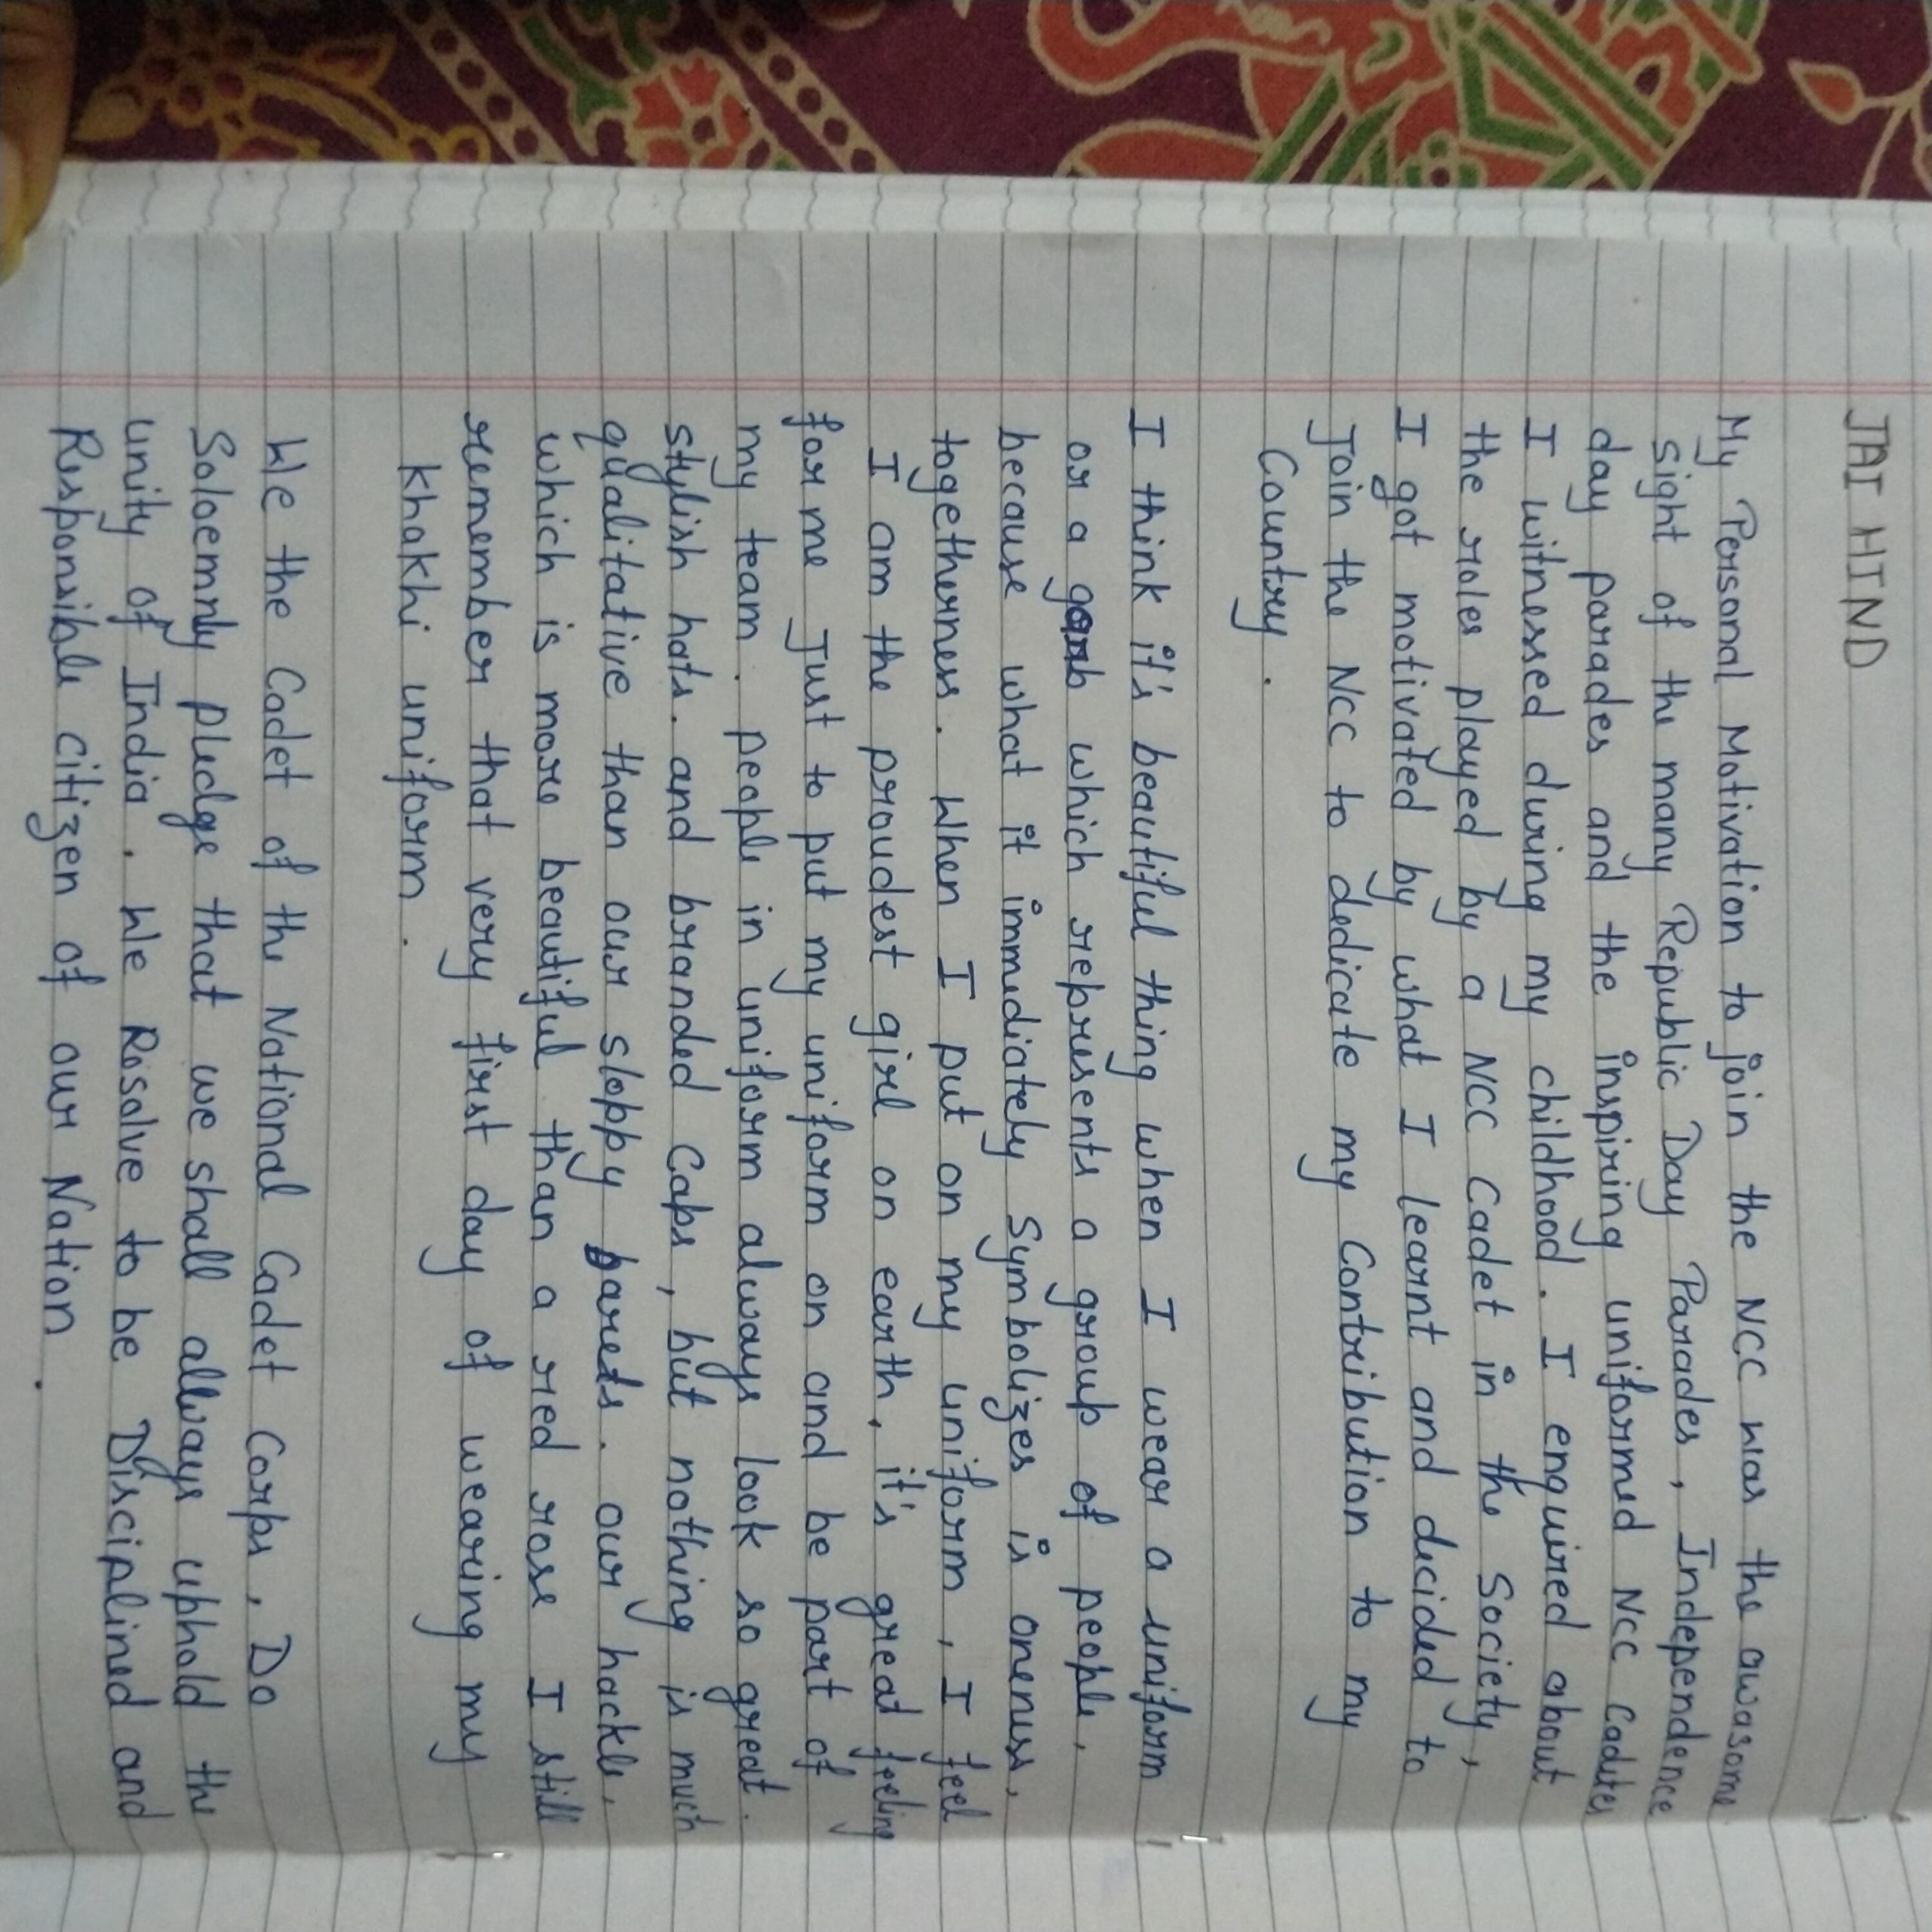 JAI HIND
My Personal Motivation to join the NCC was the awasome
sight of the many Republic Day Parades, Independence
day parades and the inspiring uniformed NCC Cadutes
I witnessed during my childhood. I enquired about
the roles played by a NCC Cadet in the Society,
I got motivated by what I learnt and decided to
Join the NCC to dedicate my Contribution to my
Country.
I think it's beautiful thing when I wear a uniform
or a garb which represents a group of people,
because what it immediately Symbolizes is oneness,
togetherness. When I put on my uniform, I feel
I am the proudest girl on earth, it's great feeling
for me Just to put my uniform on and be part of
my team. people in uniform always look so great.
stylish hats. and branded Caps, but nothing is much
qualitative than our sloppy barets. our hackle,
which is more beautiful than a red rose I still
remember that very first day of wearing my
khakhi uniform.
We the Cadet of the National Cadet Corps, Do
Soloemnly pledge that we shall allways uphold the
unity of India. We Rosolve to be Disciplined and
Responsible citizen of our Nation.